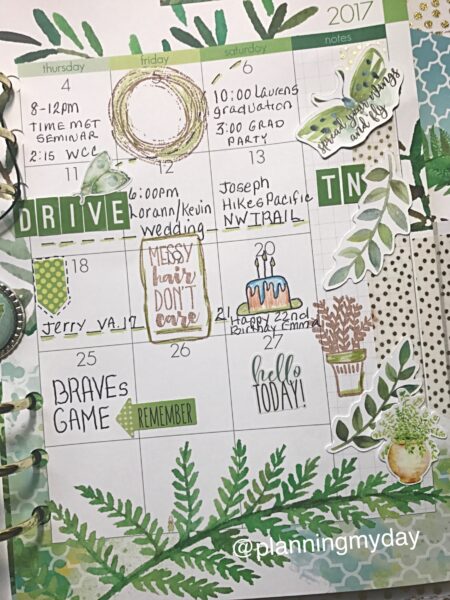 2017
thursday friday saturday notes
4 5 6
8-12pm
TIME MGT
SEMINAR
2:15 WCC
10:00 Laurens
graduation
3:00 GRAD
PARTY
spread your wings
and fly
11 12 13
DRIVE
6:00pm
Lorann/Kevin
Wedding
Joseph
Hikes Pacific
NW TRAIL
TN
18 20
Jerry_VA.17
MESSY
hair
DON'T
care
21 Happy 22nd
Birthday Emma
25 26 27
BRAVEs
GAME
REMEMBER
hello
TODAY!
@planningmyday